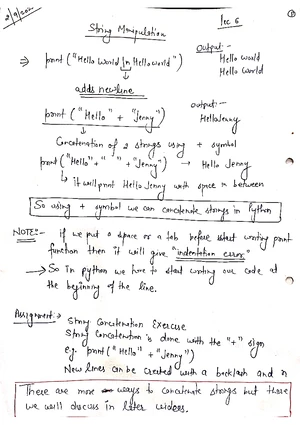 Lec 6
String Manipulation
⇒ print ("Hello World \n Hello world")
Output:-
Hello world
Hello World
adds newline
print ("Hello" + "Jenny")
output:-
HelloJenny
Concatenation of 2 strings using + symbol
print ("Hello" + " " + "Jenny") → Hello Jenny
↳ it will print Hello Jenny with space in between
So using + symbol we can concatenate strings in Python
NOTE:- if we put a space or a tab before start writing print
function then it will give "indentation error"
→ So in python we have to start writing our code at
the beginning of the line.
Assignment → String Concatenation Exercise
String Concatenation is done with the "+" sign
e.g. print ("Hello" + "Jenny")
New lines can be created with a backlash and n
There are more ways to concatenate strings but those
we will discuss in later videos.